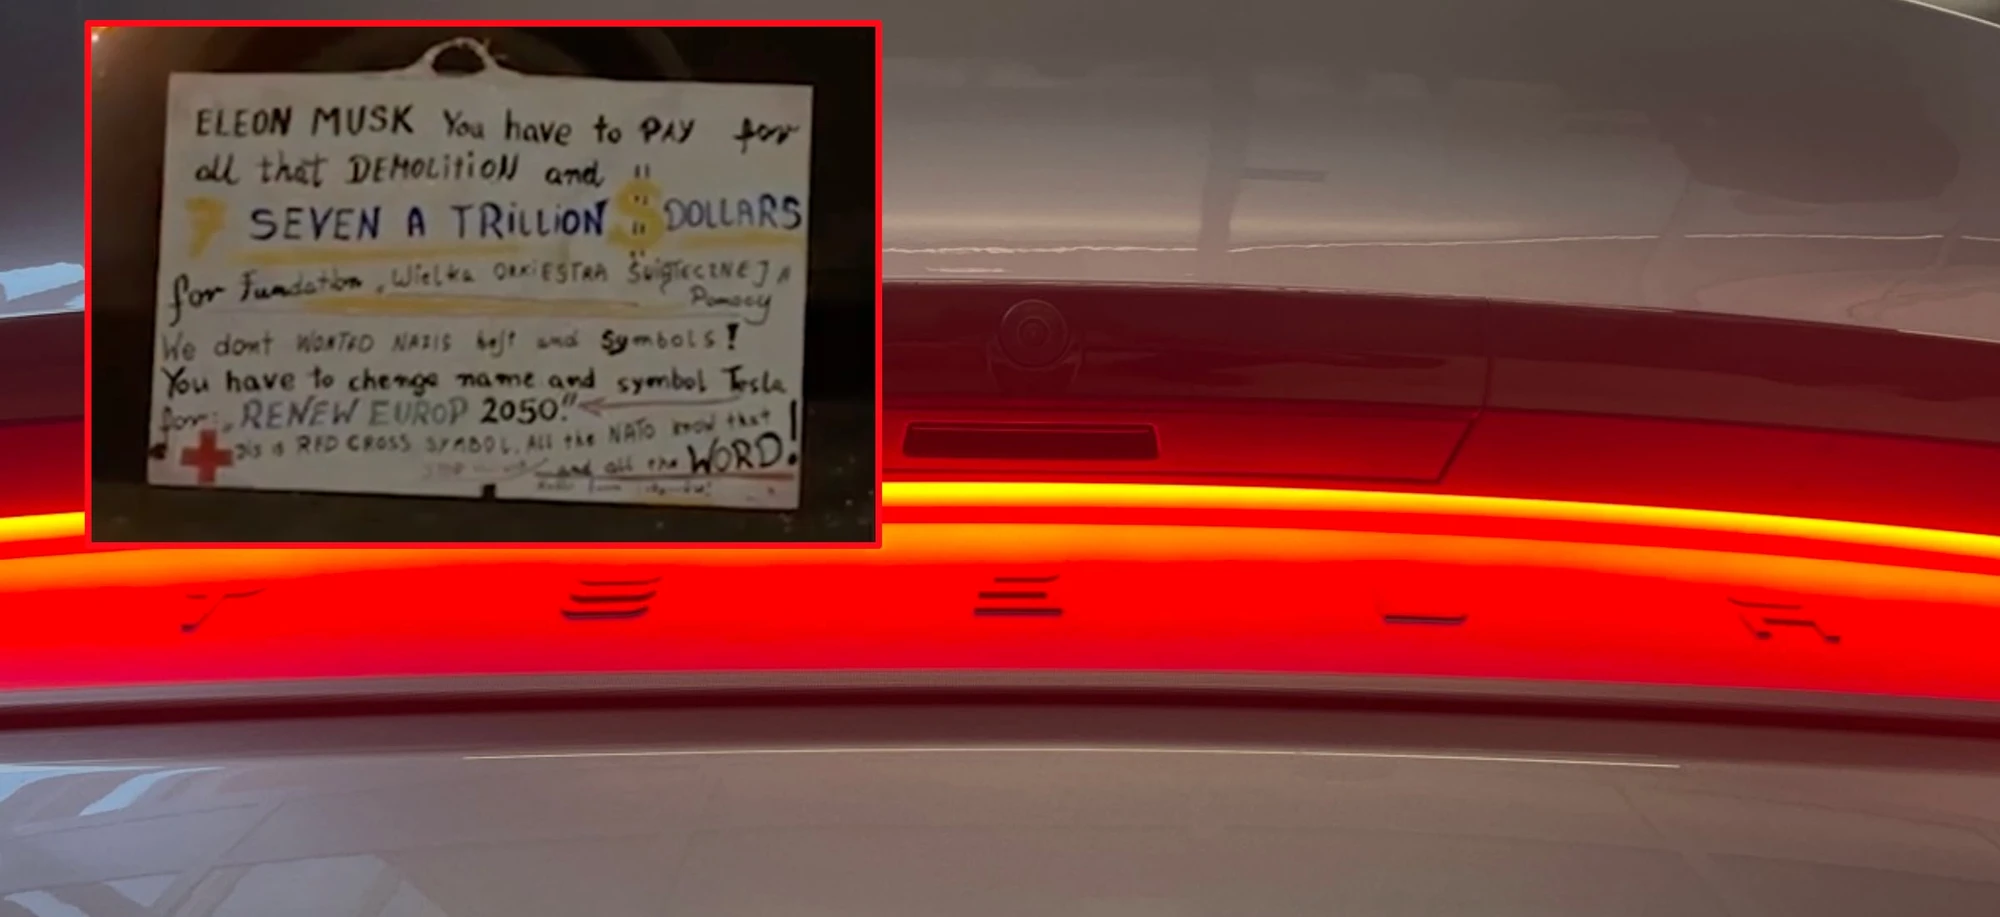 ELEON MUSK You have to PAY for
all that DEMOLITION and
7 SEVEN A TRILLION $ DOLLARS
for Fundation „Wielka ORKIESTRA ŚWIĄTECZNEJ
Pomocy
We dont WONTED NAZIS and Symbols!
You have to chenge name and symbol Tesla
for: „RENEW EUROP 2050."
is RED CROSS SYMBOL. All the NATO know that !
and all the WORD!
TESLA